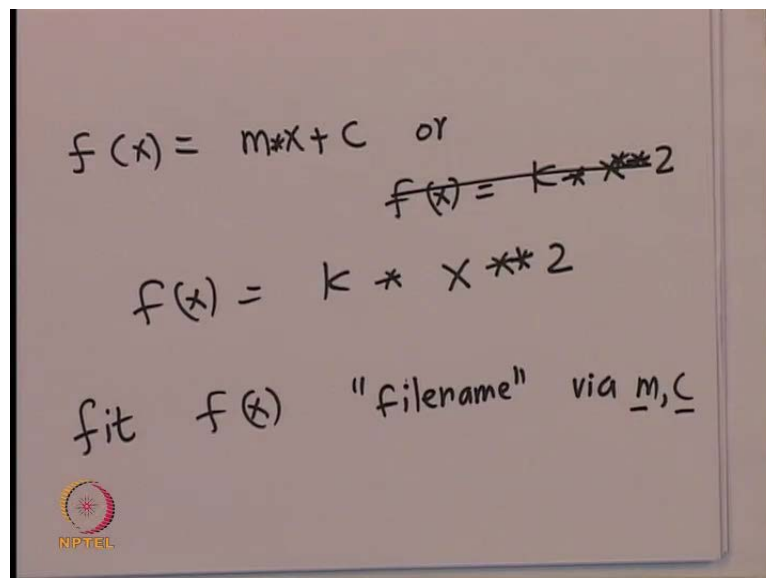 f(x) = m*x + c or
f(x) = k * x**2
f(x) = k * x ** 2
fit f(x) "filename" via m, c
NPTEL